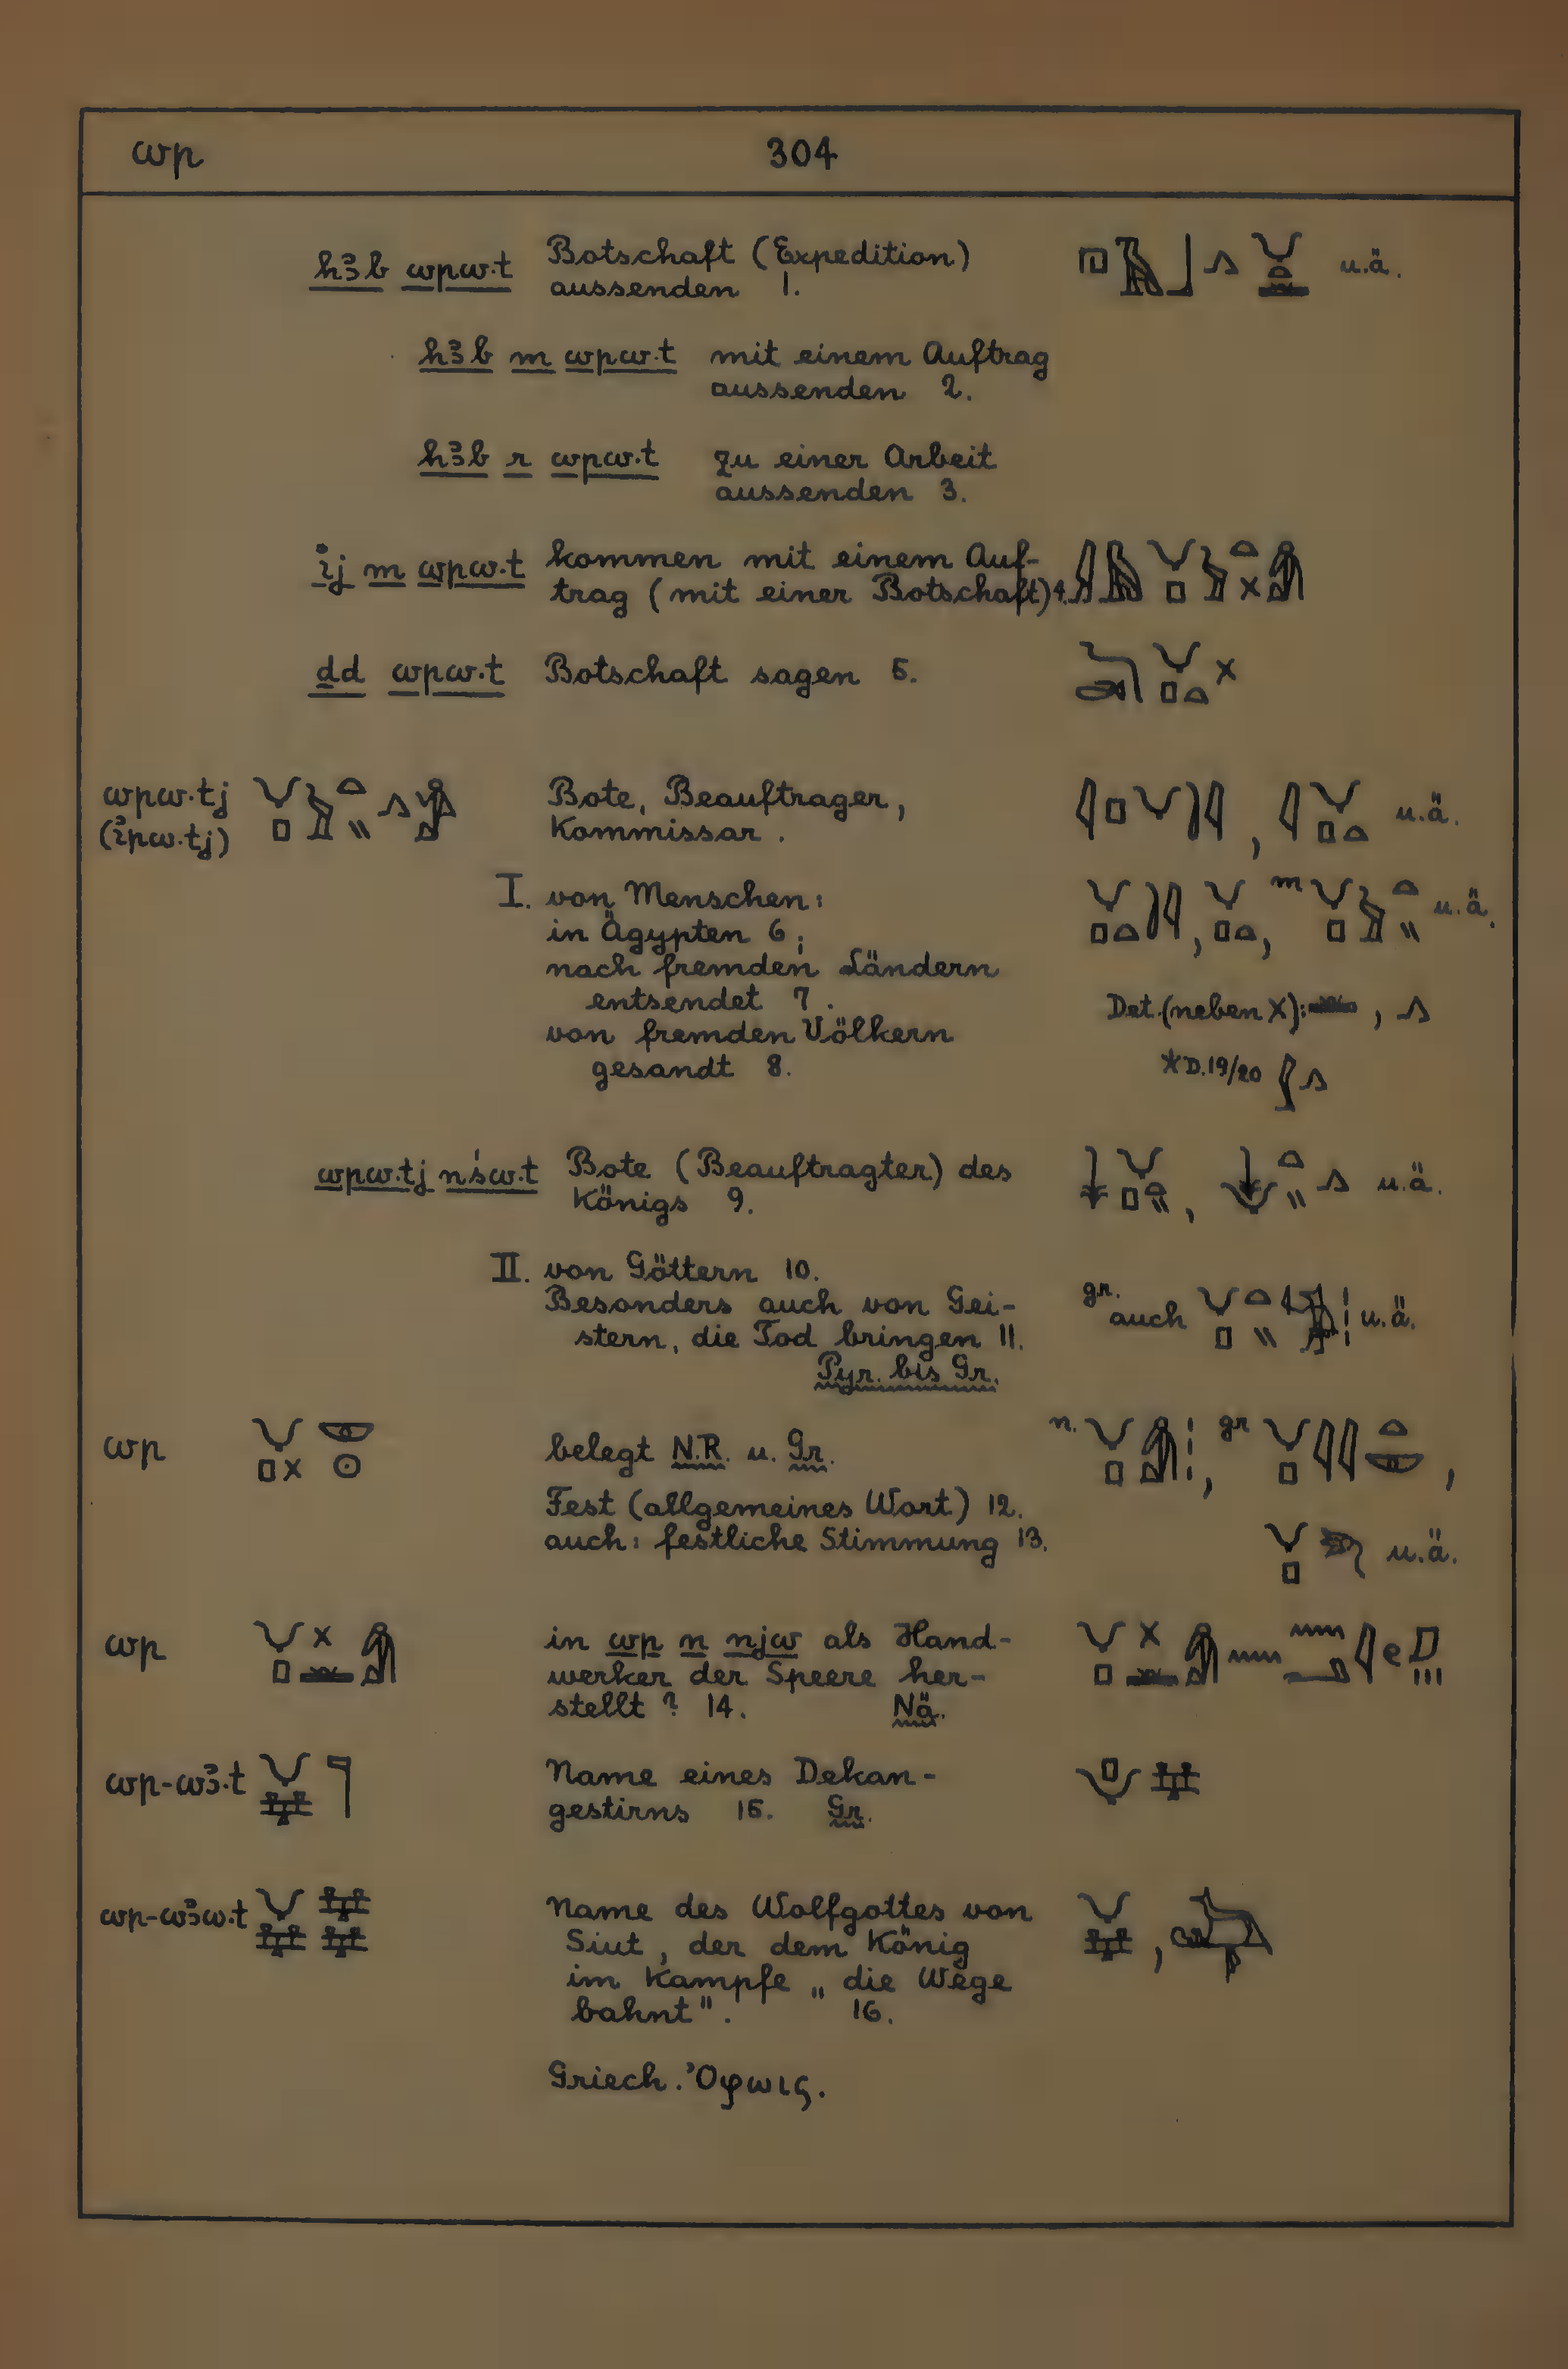 wp 304
hꜣb wpw.t Botschaft (Expedition)
aussenden 1. u.ä.
hꜣb m wpw.t mit einem Auftrag
aussenden 2.
hꜣb r wpw.t zu einer Arbeit
aussenden 3.
ij m wpw.t kommen mit einem Auf-
trag (mit einer Botschaft) 4.
ḏd wpw.t Botschaft sagen 5.
wpw.tj Bote, Beauftrager,
(ipw.tj) Kommissar. u.ä.
I. von Menschen:
in Ägypten 6; m u.ä.
nach fremden Ländern
entsendet 7. Det. (neben X):
von fremden Völkern
gesandt 8. *D.19/20
wpw.tj nśw.t Bote (Beauftragter) des
Königs 9. u.ä.
II. von Göttern 10.
Besonders auch von Gei- gr. auch u.ä.
stern, die Tod bringen 11.
Pyr. bis Gr.
wp belegt N.R. u. Gr. n. gr
Fest (allgemeines Wort) 12.
auch: festliche Stimmung 13. u.ä.
wp in wp n njw als Hand-
werker der Speere her-
stellt? 14. Nä.
wp-wꜣ.t Name eines Dekan-
gestirns 15. Gr.
wp-wꜣw.t Name des Wolfgottes von
Siut, der dem König
im Kampfe „die Wege
bahnt". 16.
Griech. Ὀφωις.